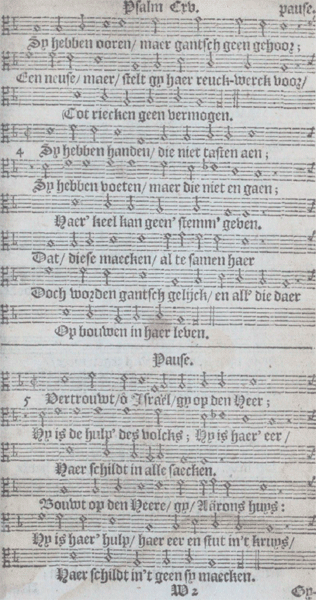 Psalm Cxv. pause.
Sy hebben ooren/ maer gantsch geen gehoor;
Een neuse/ maer/ stelt gy haer reuck-werck voor/
Tot riecken geen vermogen.
4 Sy hebben handen/ die niet tasten aen;
Sy hebben voeten/ maer die niet en gaen;
Haer' keel kan geen' stemm' geven.
Dat/ diese maecken/ al te samen haer
Doch worden gantsch gelijck/ en all' die daer
Op bouwen in haer leven.
Pause.
5 Vertrouwt/ ô Israël/ gy op den Heer;
Hy is de hulp' des volcks; Hy is haer' eer/
Haer schildt in alle saecken.
Bouwt op den Heere/ gy/ Aärons huys:
Hy is haer' hulp/ haer eer en stut in't kruys/
Haer schildt in't geen sy maecken.
W 2 Gy